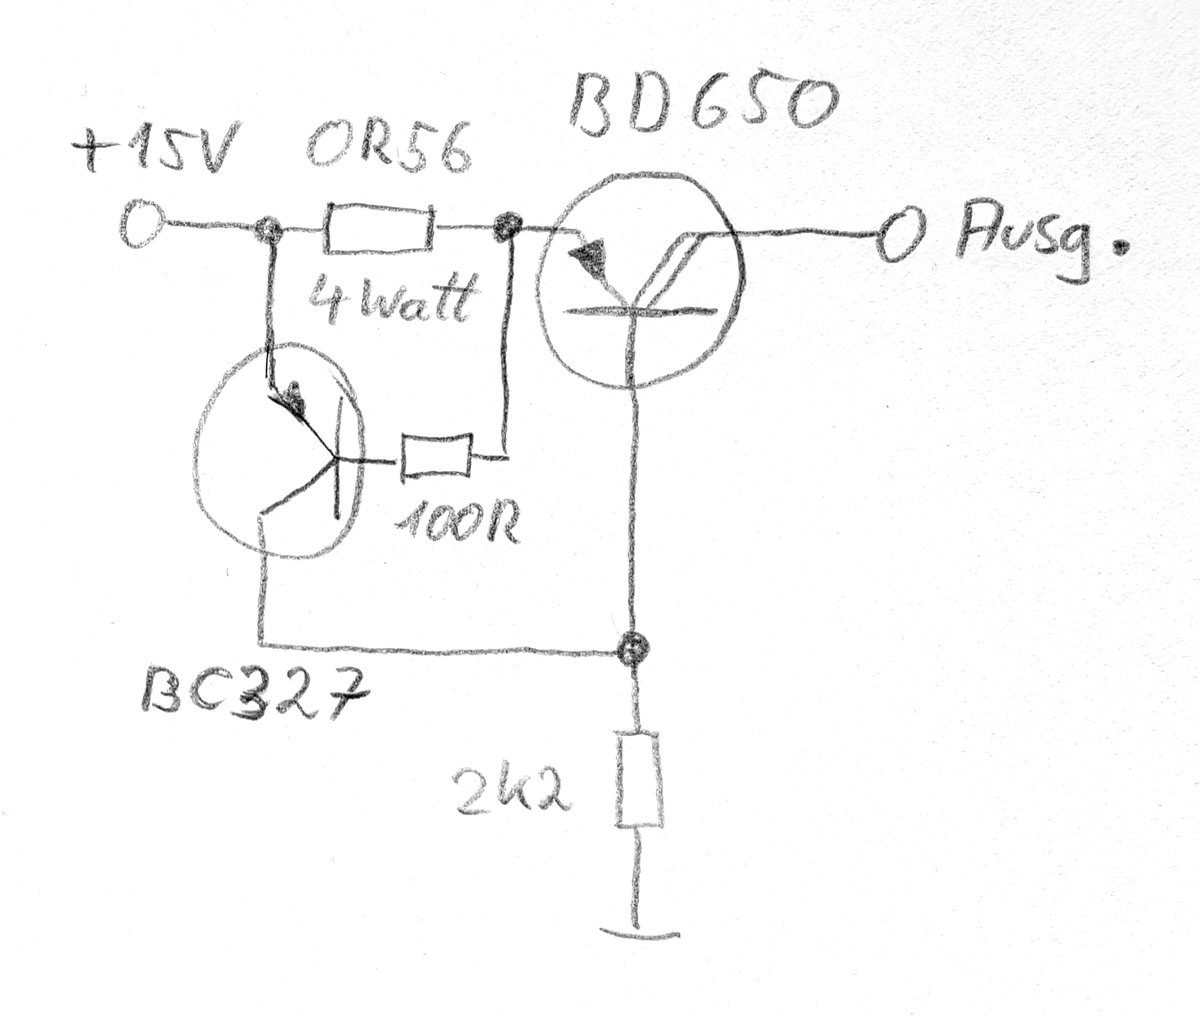 BD650
+15V 0R56
Ausg.
4Watt
100R
BC327
2k2